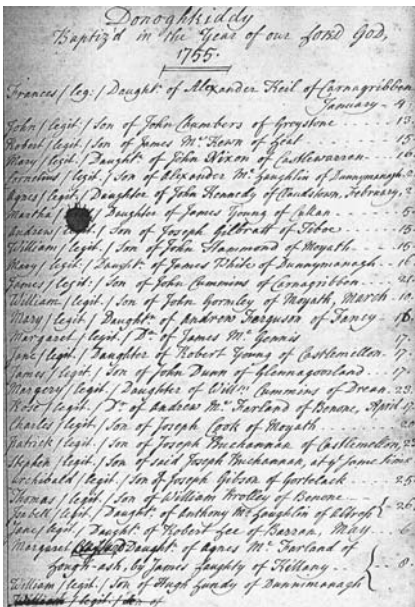 Donoghkiddy
Baptiz'd in the Year of our Lord God,
1755.
Frances / leg: / Daught.r of Alexander Keil of Carnagribben
January - 4
John / legit: / Son of John Chambers of Greystone - - - - 13
Robert / legit: / Son of James Mc.Kown of - - - - 15
Mary / legit. / Daught.r of John Nixon of Castlewarren - - 16
Cornelius / legit. / Son of Alexander Mc.Laughlin of Dunnymanagh - 2
Agnes / legit / Daughter of John Kennedy of Claudstown, February, 2
Martha / Daughter of James Young of - - - - 5
Andrew / Son of Joseph Gilbratt of Tiboe - - - - 15
William / legit. / Son of John Hammond of Moyath - - - 15
Mary / legit / Daught.r of James White of Dunnymanagh - - 16
James / legit: / Son of John Cummins of Carnagribben - - - 21
William / legit. / Son of John Gormley of Moyath, March - 10
Mary / legit / Daught.r of Andrew Farguson of Fancy - 16
Margaret / legit / Dr. of James Mc.Gennis - - - 17
Jane / legit / Daughter of Robert Young of Castlemellon - 17
James / legit / Son of John Dunn of Glennagoorland - - 17
Margery / legit. / Daughter of Willm. Cummins of Drean - 23
Rose / legit / Dr. of Andrew Mc.Farland of Benone, April
Charles / legit / Son of Joseph Cook of Moyath - - - -
Patrick / legit. / Son of Joseph Buchannan of Castlemellon, 2
Stephen / legit. / Son of said Joseph Buchannan, at ye. same time
Archibald / legit / Son of Joseph Gibson of Gortclack - - - 25
Thomas / legit. / Son of William Brolley of Benone - - -
Isabell / legit / Daught.r of Anthony Mc.Laughlin of } - 26
Jane / legit. / Daught.r of Robert Lee of Barran, May - - 6
Margaret Daught.r of Agnes Mc.Farland of
Lough-ash, by James Laughty of Killany - - } - - 8
William / legit. / Son of Hugh Lundy of Dunnimanagh
William / legit. / Son of